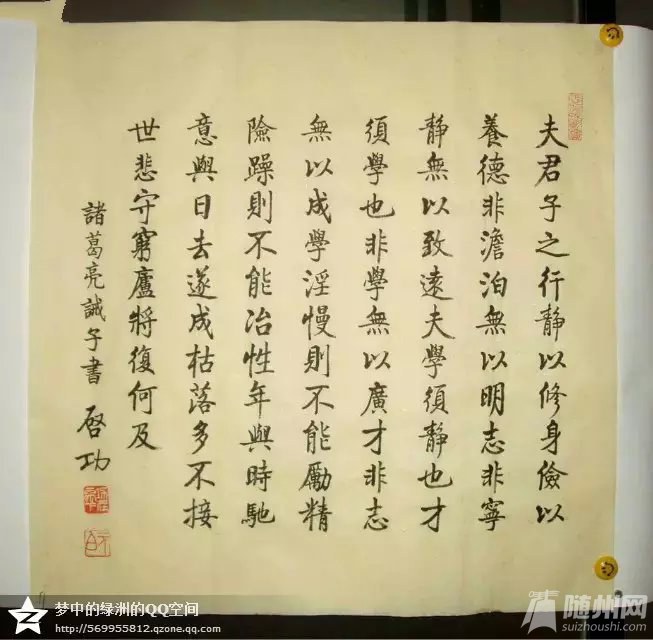 夫君子之行静以修身儉以
養德非澹泊無以明志非寧
静無以致遠夫學須静也才
須學也非學無以廣才非志
無以成學淫慢則不能勵精
險躁則不能冶性年與時馳
意與日去遂成枯落多不接
世悲守窮廬將復何及
諸葛亮誡子書 啓功
梦中的绿洲的QQ空间
http://569955812.qzone.qq.com
随州网
suizhoushi.com